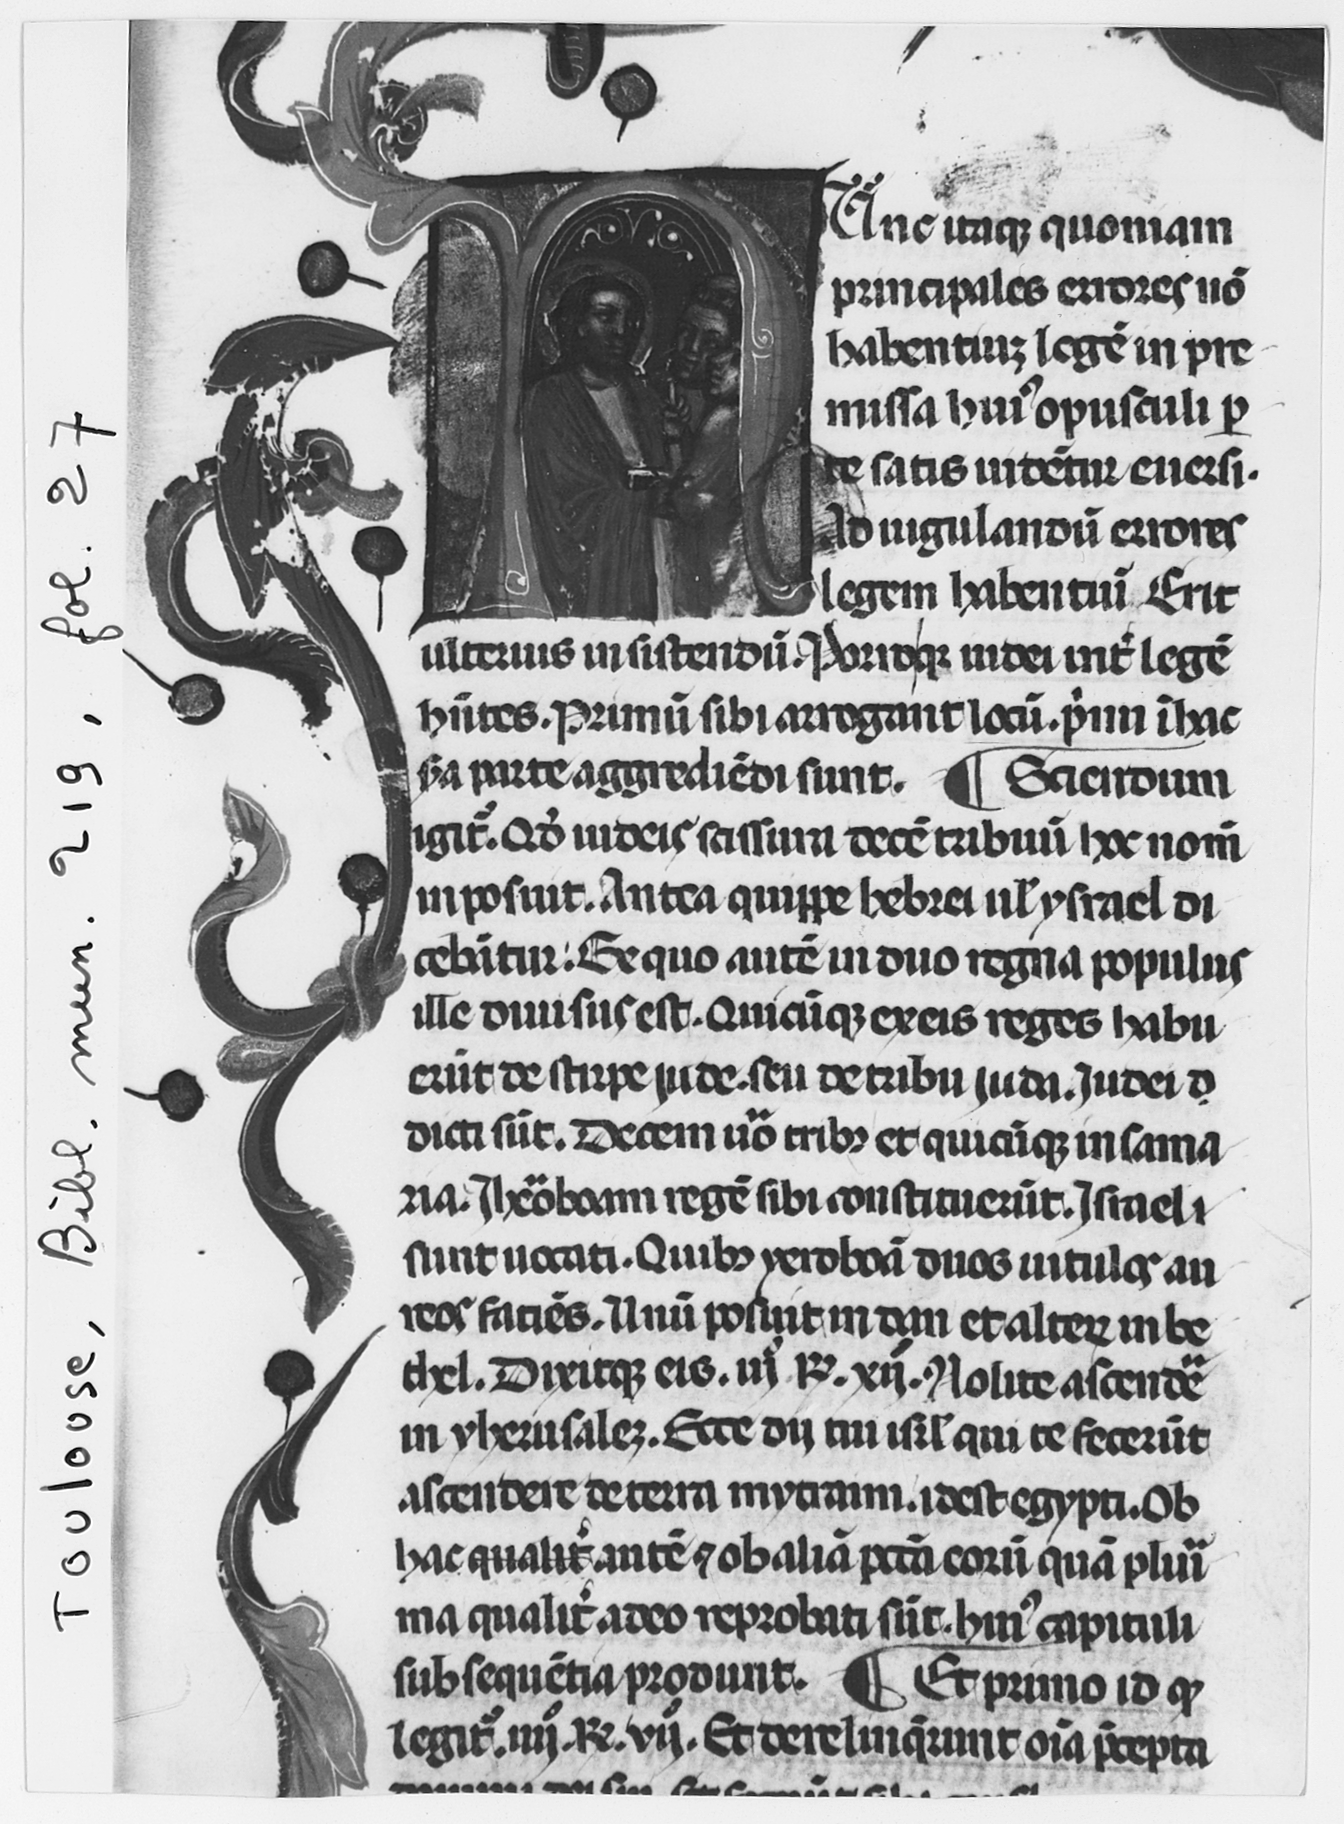 Toulouse, Bibl. mun. 219, fol. 27
Unc itaqꝫ quoniam
principales errores nō
habentiuꝫ legē in pre
missa huiꝰ opusculi ꝑ
te satis uidētur euersi.
Ad iugulandū errores
legem habentiū Erit
ulterius insistendū. Porroqꝫ iudei int̉ legē
hn̄tes. Primū sibi arrogant locū. p̉mi ī hac
scꝺa parte aggrediēdi sunt. ¶ Sciendum
igit̉. Qd̉ iudeis scissura decē tribuū hoc nom̄
inposuit. Antea quippe hebrei ul̉ ysrael di
cebātur. Ex quo autē in duo regna populus
ille diuisus est. Quicūqꝫ ex eis reges habu
erūt de stirpe iude. seu de tribu iuda. Iudei
dicti sūt. Decem u̅o tribꝫ et quicūqꝫ in sama
ria. Iheroboam regē sibi constituerūt. Israeli
sunt uocati. Quibꝫ yeroboā duos uitulos au
reos faciēs. Unū posuit in dan et alterꝫ in be
thel. Dixitqꝫ eis. iijͦ R. xij. Nolite ascende
in yherusaleꝫ. Ecce dij tui isrl̉ qui te fecerūt
ascendere de terra myzraim. idest egypti. Ob
hac qualit̉ autē ⁊ ob aliā pctā eorū quā plurī
ma qualit̉ adeo reprobati sūt. huiꝰ capituli
subsequētia produnt. ¶ Et primo id qꝫ
legit̉. iiijͦ. R. vij. Et derelinq̄runt oīa p̄cepta